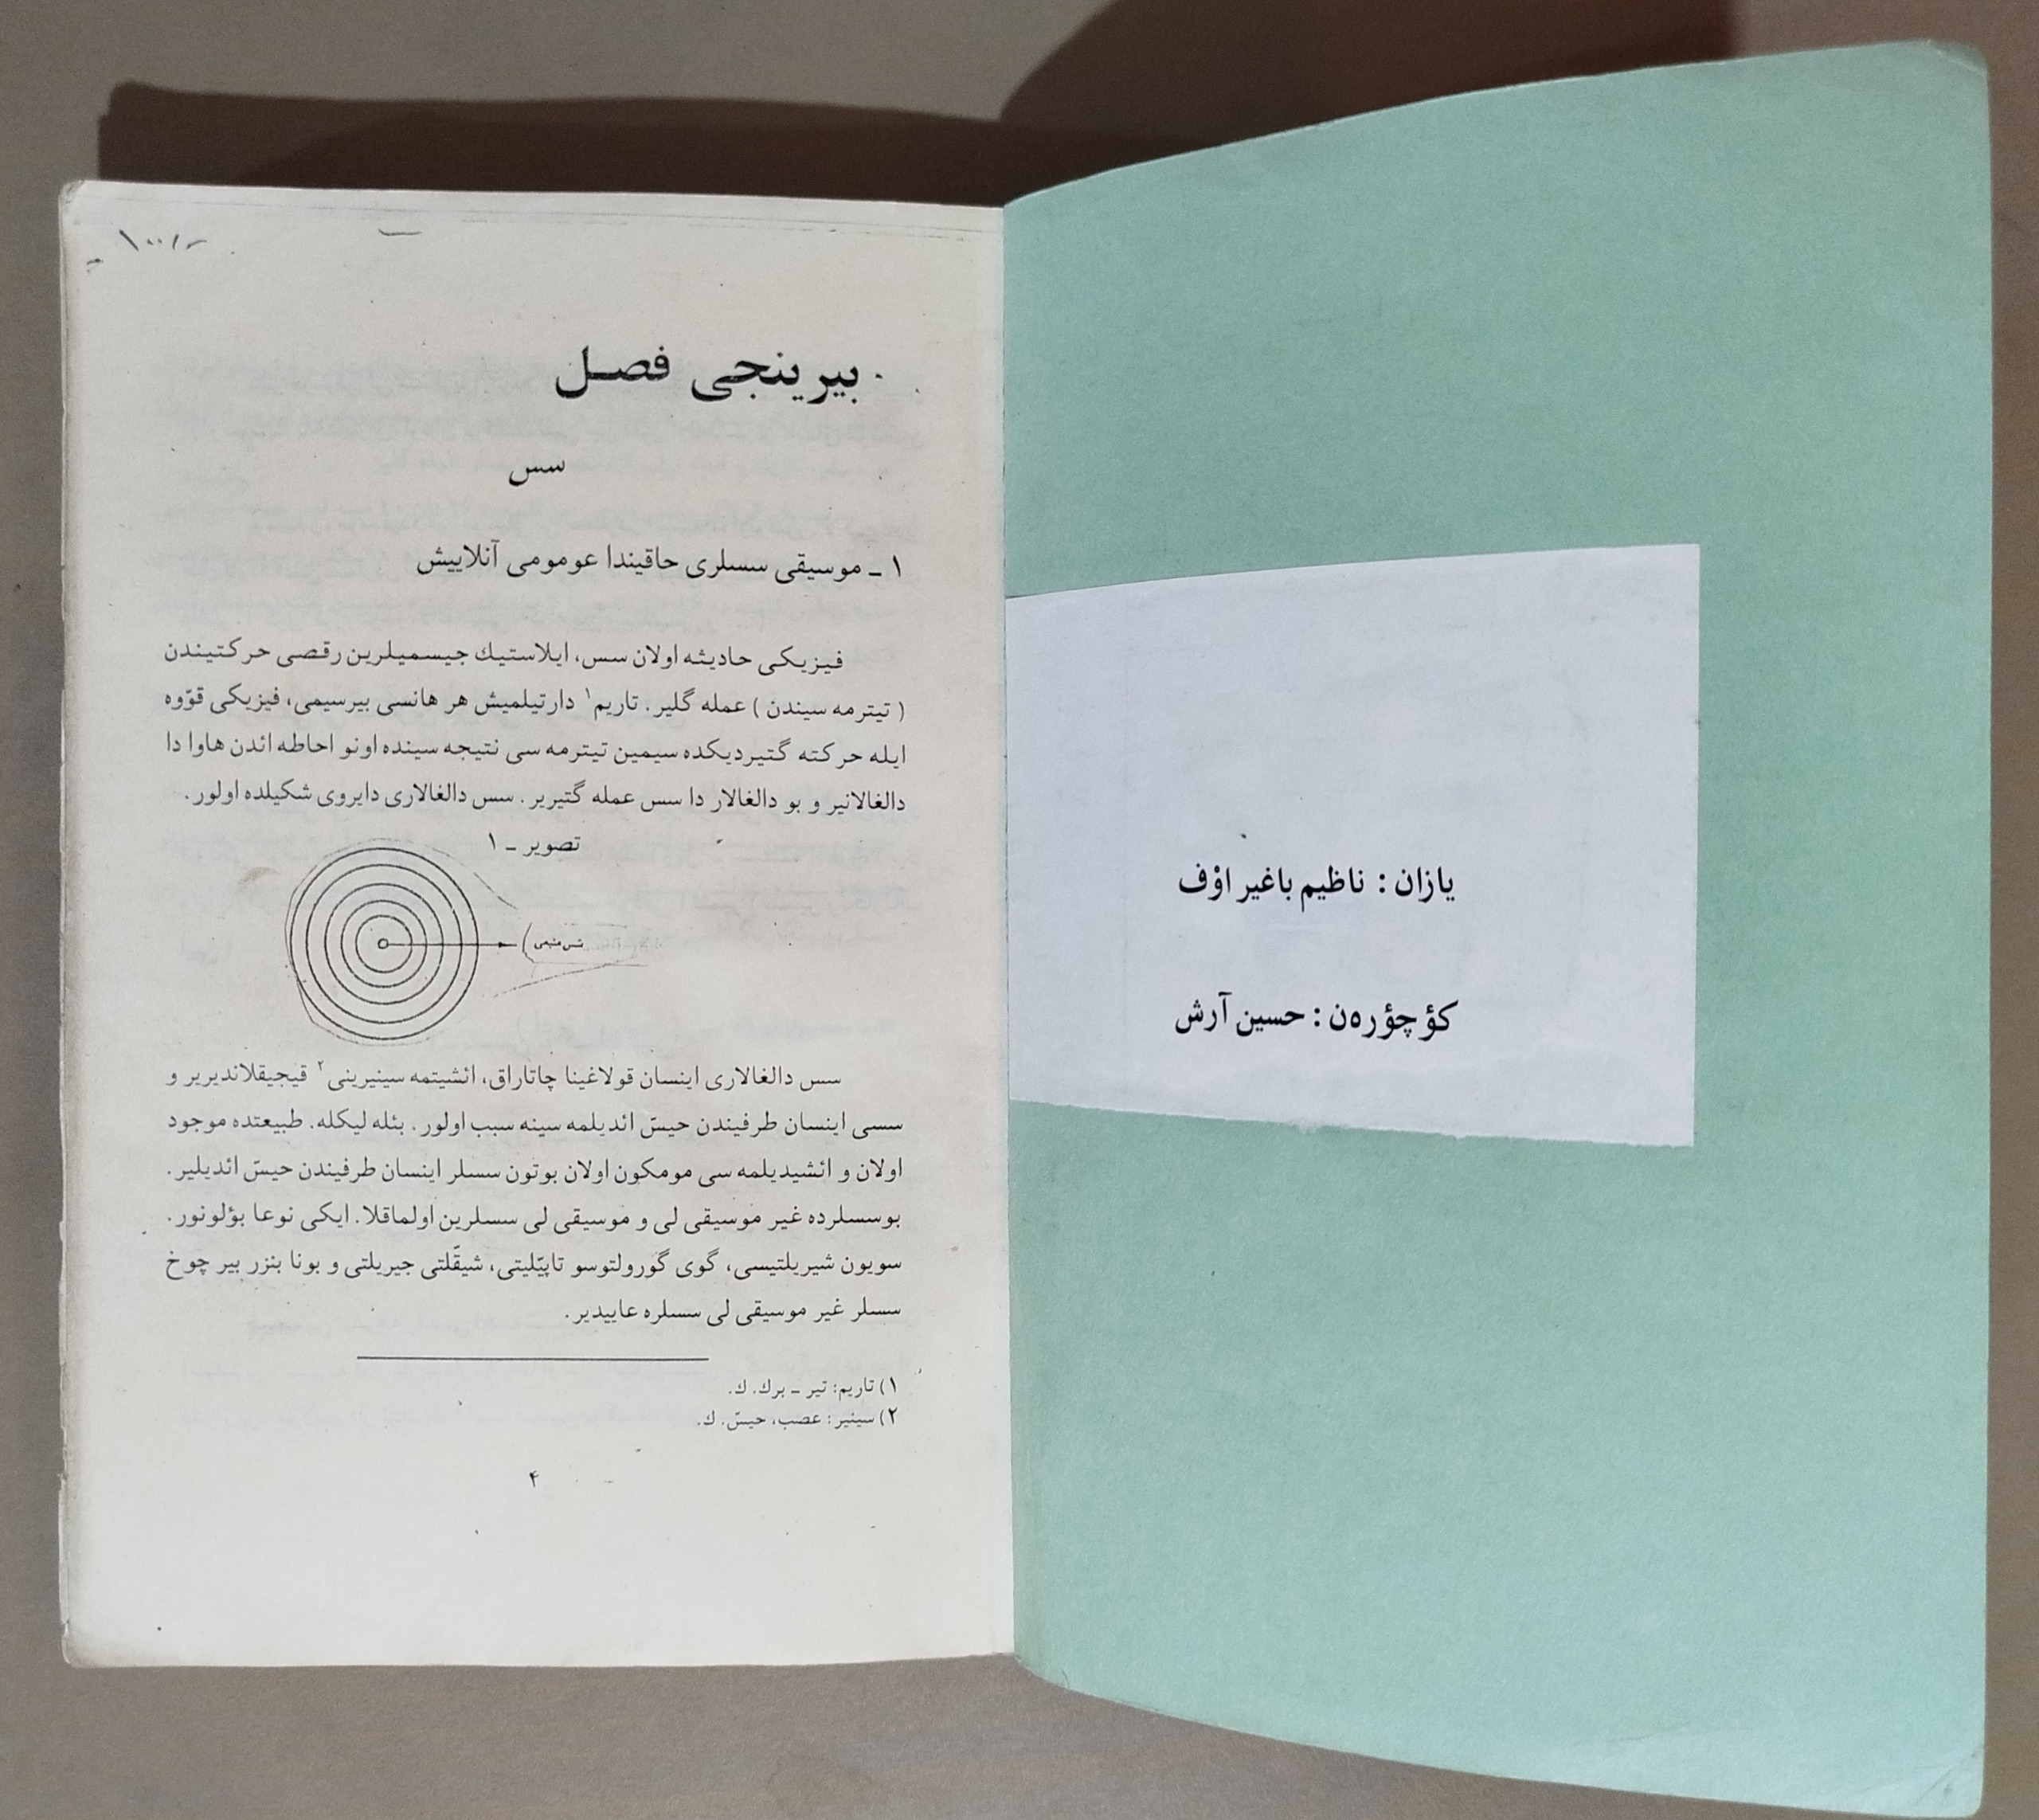 یازان : ناظیم باغیر اوْف
کؤچؤره‌ن : حسین آرش
بیرینجی فصل
سس
۱ ـ موسیقی سسلری حاقیندا عومومی آنلاییش
فیزیکی حادیثه اولان سس، ایلاستیك جیسمیلرین رقصی حرکتیندن
( تیترمه سیندن ) عمله گلیر. تاریم۱ دارتیلمیش هر هانسی بیرسیمی، فیزیکی قوّوه
ایله حرکته گتیردیکده سیمین تیترمه سی نتیجه سینده اونو احاطه ائدن هاوا دا
دالغالانیر و بو دالغالار دا سس عمله گتیریر. سس دالغالاری دایروی شکیلده اولور.
تصویر ـ ۱
سس دالغالاری اینسان قولاغینا چاتاراق، ائشیتمه سینیرینی۲ قیجیقلاندیریر و
سسی اینسان طرفیندن حیسّ ائدیلمه سینه سبب اولور. بئله لیکله. طبیعتده موجود
اولان و ائشیدیلمه سی مومکون اولان بوتون سسلر اینسان طرفیندن حیسّ ائدیلیر.
بوسسلرده غیر موسیقی لی و موسیقی لی سسلرین اولماقلا. ایکی نوعا بؤلونور.
سویون شیریلتیسی، گوی گورولتوسو تاپّیلیتی، شیقّلتی جیریلتی و بونا بنزر بیر چوخ
سسلر غیر موسیقی لی سسلره عاییدیر.
۱) تاریم: تیر ـ برك. ك.
۲) سینیر: عصب، حیسّ. ك.
۴